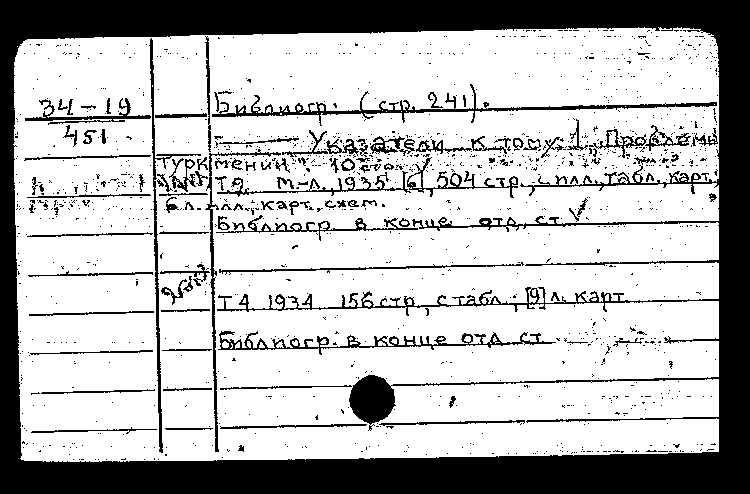 34-19
451
Библиогр: (стр. 241).
Указатели к тому 1 „Проблемы
Туркмении".
Т.2. М-Л., 1935. [6], 504 стр., с илл., табл., карт.;
6 л. илл., карт., схем.
Библиогр. в конце отд. ст.
Т 4 1934 156 стр., с табл.; [9] л. карт.
Библиогр. в конце отд. ст